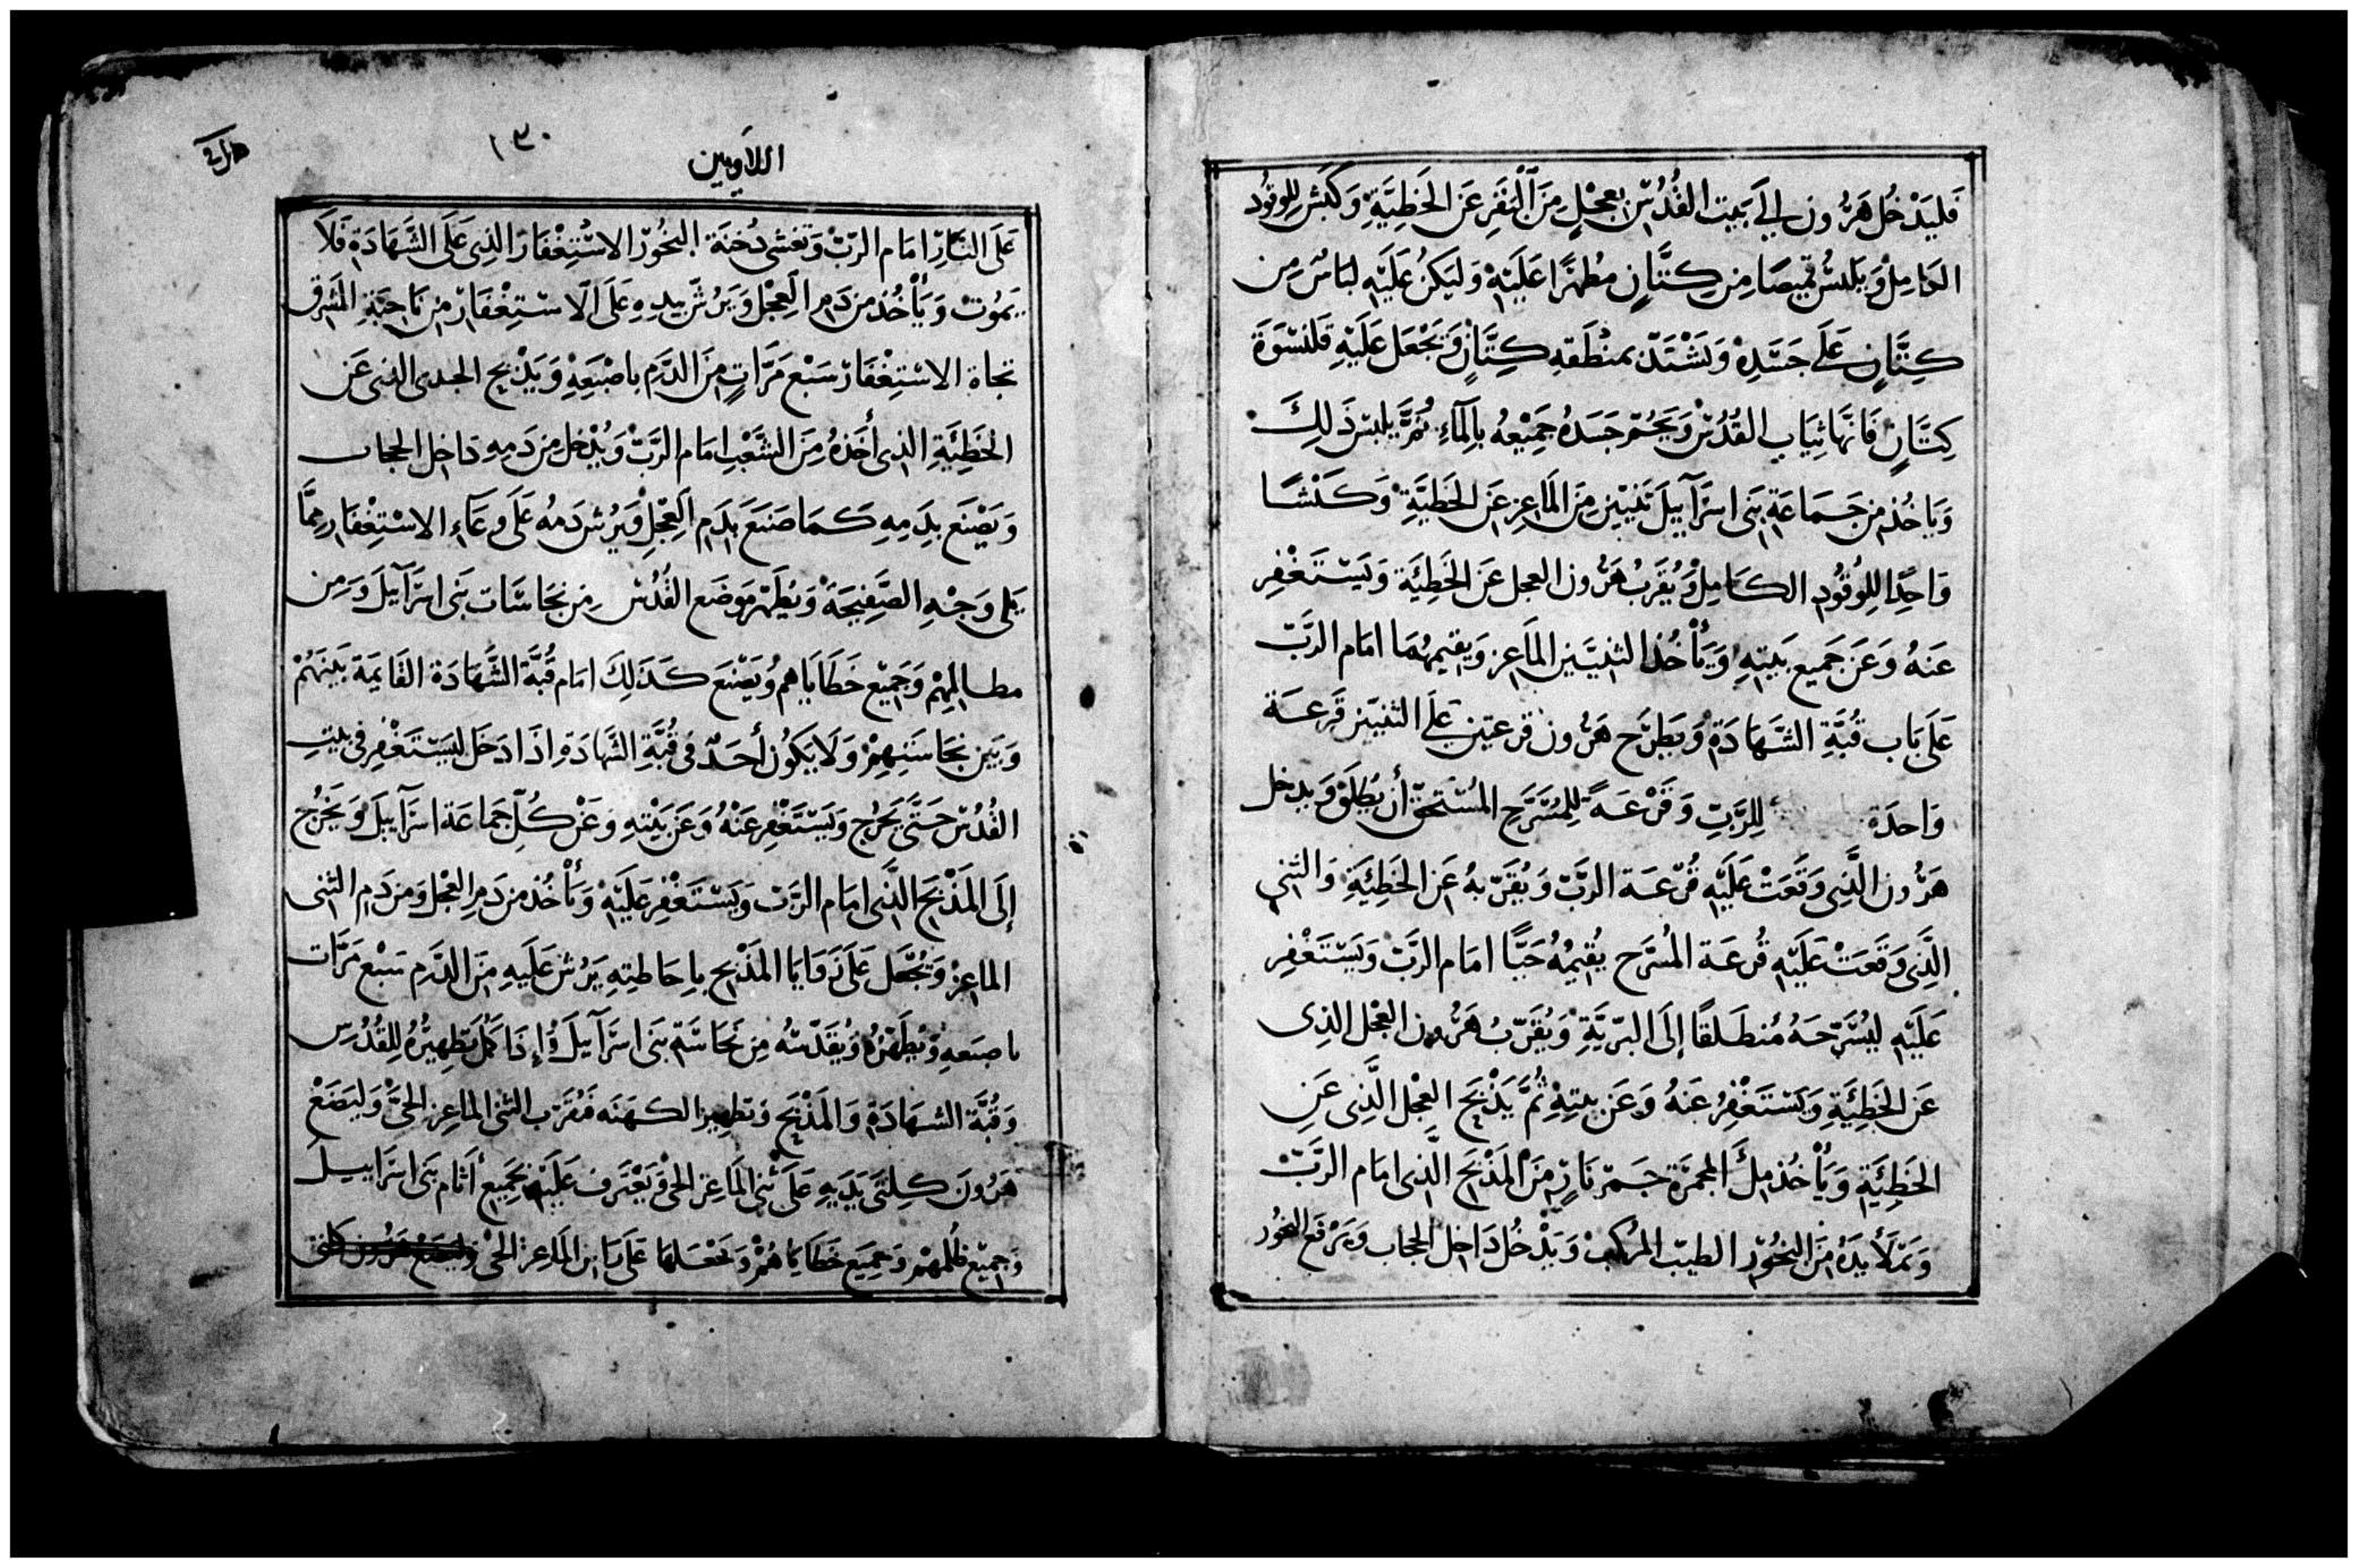 فَليَدْخُل هَرُون إلَى بَيت القُدُس بعِجْلٍ مِنَ البَقَرِ عَن الخَطِيَّةِ وَكَبْش لِلوقُود
الكامِل وَيَلبَسُ قميصًا مِن كِتَّانٍ مطهرًا عَلَيْهِ وَليَكنُ عَلَيْهِ لبَاسٌ مِن
كِتَّانٍ عَلَى جَسَدِهْ وَيَشْتَدّ بمنْطَقه كِتَّانٍ وَيَجْعَل عَلَيْهِ قَلنسْوَةَ
كِتَّانٍ فَانّهَا ثِيَاب القُدُسْ وَيَحُمّ جَسَدَهُ جَمِيْعهُ بِالمَاءِ ثُمَّ يَلبس ذَلِكَ
وَيَاخُذ مِن جَمَاعَة بَنى اسرَآييلَ ثنيَيْن مِنَ المَاعِز عَن الخَطيَّةِ وَكَبْشًا
وَاحِدًا لِلوُقُود الكَامِلْ وَيُقَرِّبُ هَرُون العجل عَنَ الخَطِيَّة وَيَسْتَغْفِر
عَنهُ وَعَن جَميع بَيتِهِ وَيَأْخُذ الثنيَيْن المَاعِز وَيقيمهُمَا امَام الرَّبّ
عَلَى بَاب قُبَّةِ الشَّهَادَةْ وَيَطرَح هَرُون قرعَتين عَلَى الثنيَيْن قَرعَة
وَاحدَة لِلرَّبِّ وَقَرْعَةً لِلمُسَرَّحِ المُسْتحَقّ أَن يُطلَقْ وَيدخل
هَرُون الَّذِى وَقَعَتْ عَلَيْهِ قُرْعَة الرَّبّ وَيُقَرّبهُ عَن الخَطِيَّةِ وَالثنى
الَّذِى وَقَعَتْ عَلَيْهِ قُرعَة المُسَرَّح يُقيمُهُ حَيًّا امَام الرَّبّ وَيَسْتَغْفِر
عَلَيْهِ ليُسَرّحَهُ مُنطَلقًا إلَى البَرّيَّةِ وَيُقَرّبُ هَرُون العِجْل الذى
عَن الخَطِيئَةِ وَيَسْتَغْفِرُ عَنهُ وَعَن بيتِهِ ثُمَّ يَذْبَح العِجْل الَّذِى عَن
الخَطِيئَةِ وَيَأْخُذ مِلْ المجمَرَة جَمْر نَارٍ مِنَ المَذْبَح الَّذِى امَام الرَّبّ
وَيَمْلَأ يَدَهُ مِنَ البَخُوْر الطيّب المُركب وَيَدْخُل دَاخِل الحجاب وَيَرْفَع البخُور
١٣٠
اللاَويين
عَلَى النَّار امَام الرَبّ وَتغشى دُخنَة البخُور الاسْتِغْفَار الذِى عَلَى الشَّهَادَة فَلَا
يَمُوت وَيَأْخُذ من دَم العِجْل وَيَرُشّ بيدِهِ عَلَى الاسْتِغْفَار مِن نَاحيَة المَشرق
تجاة الاسْتِغْفَار سَبْع مَرَّاتٍ مِنَ الدَّم باصْبَعِهِ وَيَذْبح الجدى الذى عَن
الخَطِيَّةِ الذى أخَذهُ مِنَ الشَّعْب امَام الرَّبّ وَيُدْخل مِن دَمِهِ دَاخِل الحجاب
وَيَصْنَع بِدَمِهِ كَمَا صَنَعَ بِدَم العِجْلِ وَيَرُش دَمهُ عَلَى وعَاء الاسْتِغْفَار ممَّا
يَلى وَجْهِ الصَّفِيحَةْ وَيُطَهّر مَوضَع القُدُس مِن نجَاسَات بَنى اسرَآييلَ وَمِن
مظالِمهِمْ وَجَمِيْع خَطَايَاهم وَيَصْنَع كَذَلِكَ امَام قُبَّة الشَّهَادَة القَايمَة بَينَهُمْ
وَبَين نجَاسَتِهِمْ وَلَا يَكُون أحَدٌ فى قُبَّةِ الشَّهَادَة اذَا دَخَل ليَسْتَغْفِر فى بيت
القُدُس حَتَّى يَخرُج وَيَسْتَغْفِر عَنْهُ وَعَن بَيْتِهِ وَعَنْ كُلّ جَمَاعَة اسرَآييلَ وَيَخْرُج
إلَى المَذْبَح الَّذى امَام الرَّبّ وَيَسْتَغْفِر عَلَيْهِ وَيَأْخُذ من دَم العِجْل وَمن دَم الثنى
الماعِز وَيُجْعَل عَلَى زَوَايَا المَذْبَح بِاحَاطتِهِ يَرُش عَلَيهِ مِنَ الدَّم سَبْع مَرَّات
باصبَعهِ وَيُطَهّرُهُ وَيُقَدّسُهُ مِن نَجَاسَة بَنى اسرَآييلَ وَإذَا كَمُل تَطهِيْرُهُ لِلقُدُس
وَقُبَّة الشهَادَة وَالمَذْبَح وَتطهير الكهَنَه فَيُقَرّب الثنى المَاعز الحىّ وَليَضَعْ
هَرُون كِلتَى يَدَيهِ عَلَى ثنى المَاعِز الحىّ وَيَعْتَرف عَلَيْهِ بجَمِيع أثَام بَنى اسرَاييلَ
وَجَمِيْع ظُلمهمْ وَجميَع خَطَايَاهُمْ وَيَجْعَلهَا عَلَى رَاس المَاعز الحىّ وليضع هرون كلتى